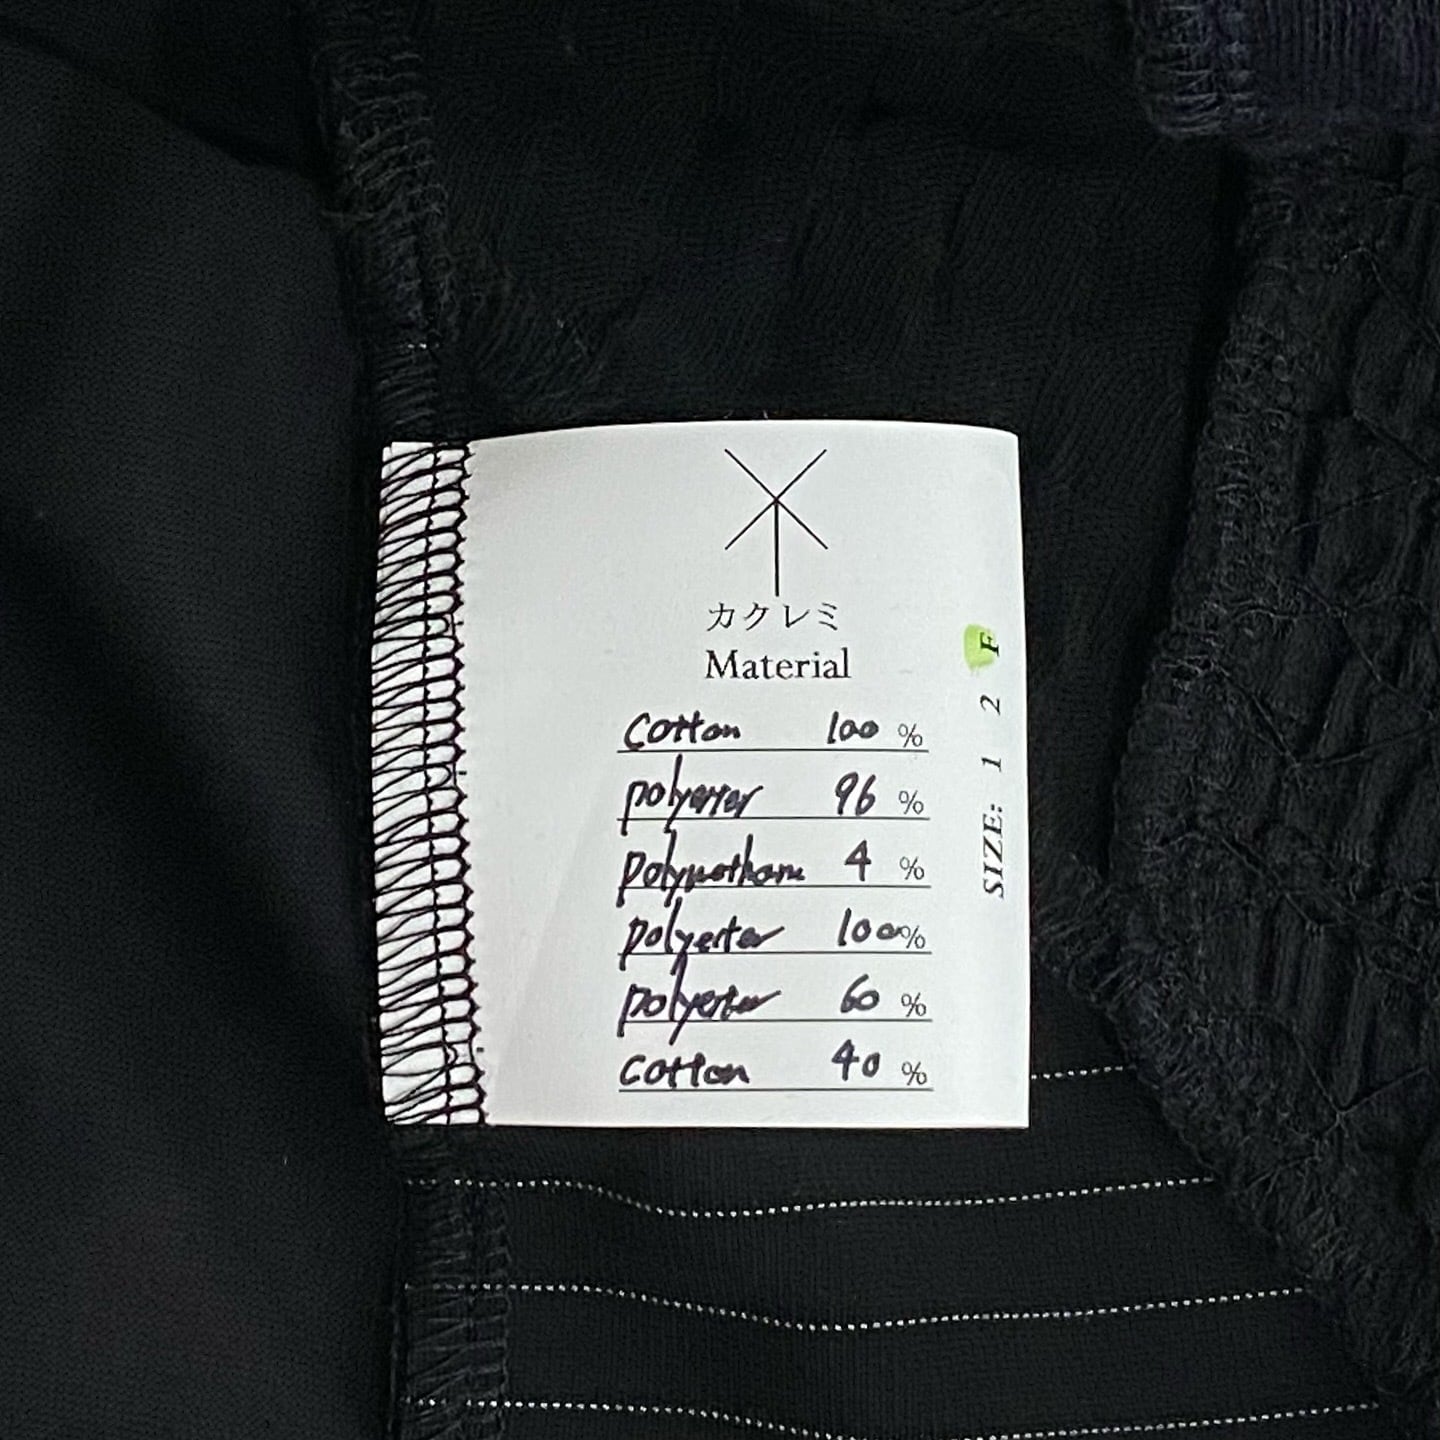 カクレミ
Material
cotton 100 %
polyester 96 %
polyurethane 4 %
polyester 100%
polyester 60 %
cotton 40 %
SIZE: 1 2 F